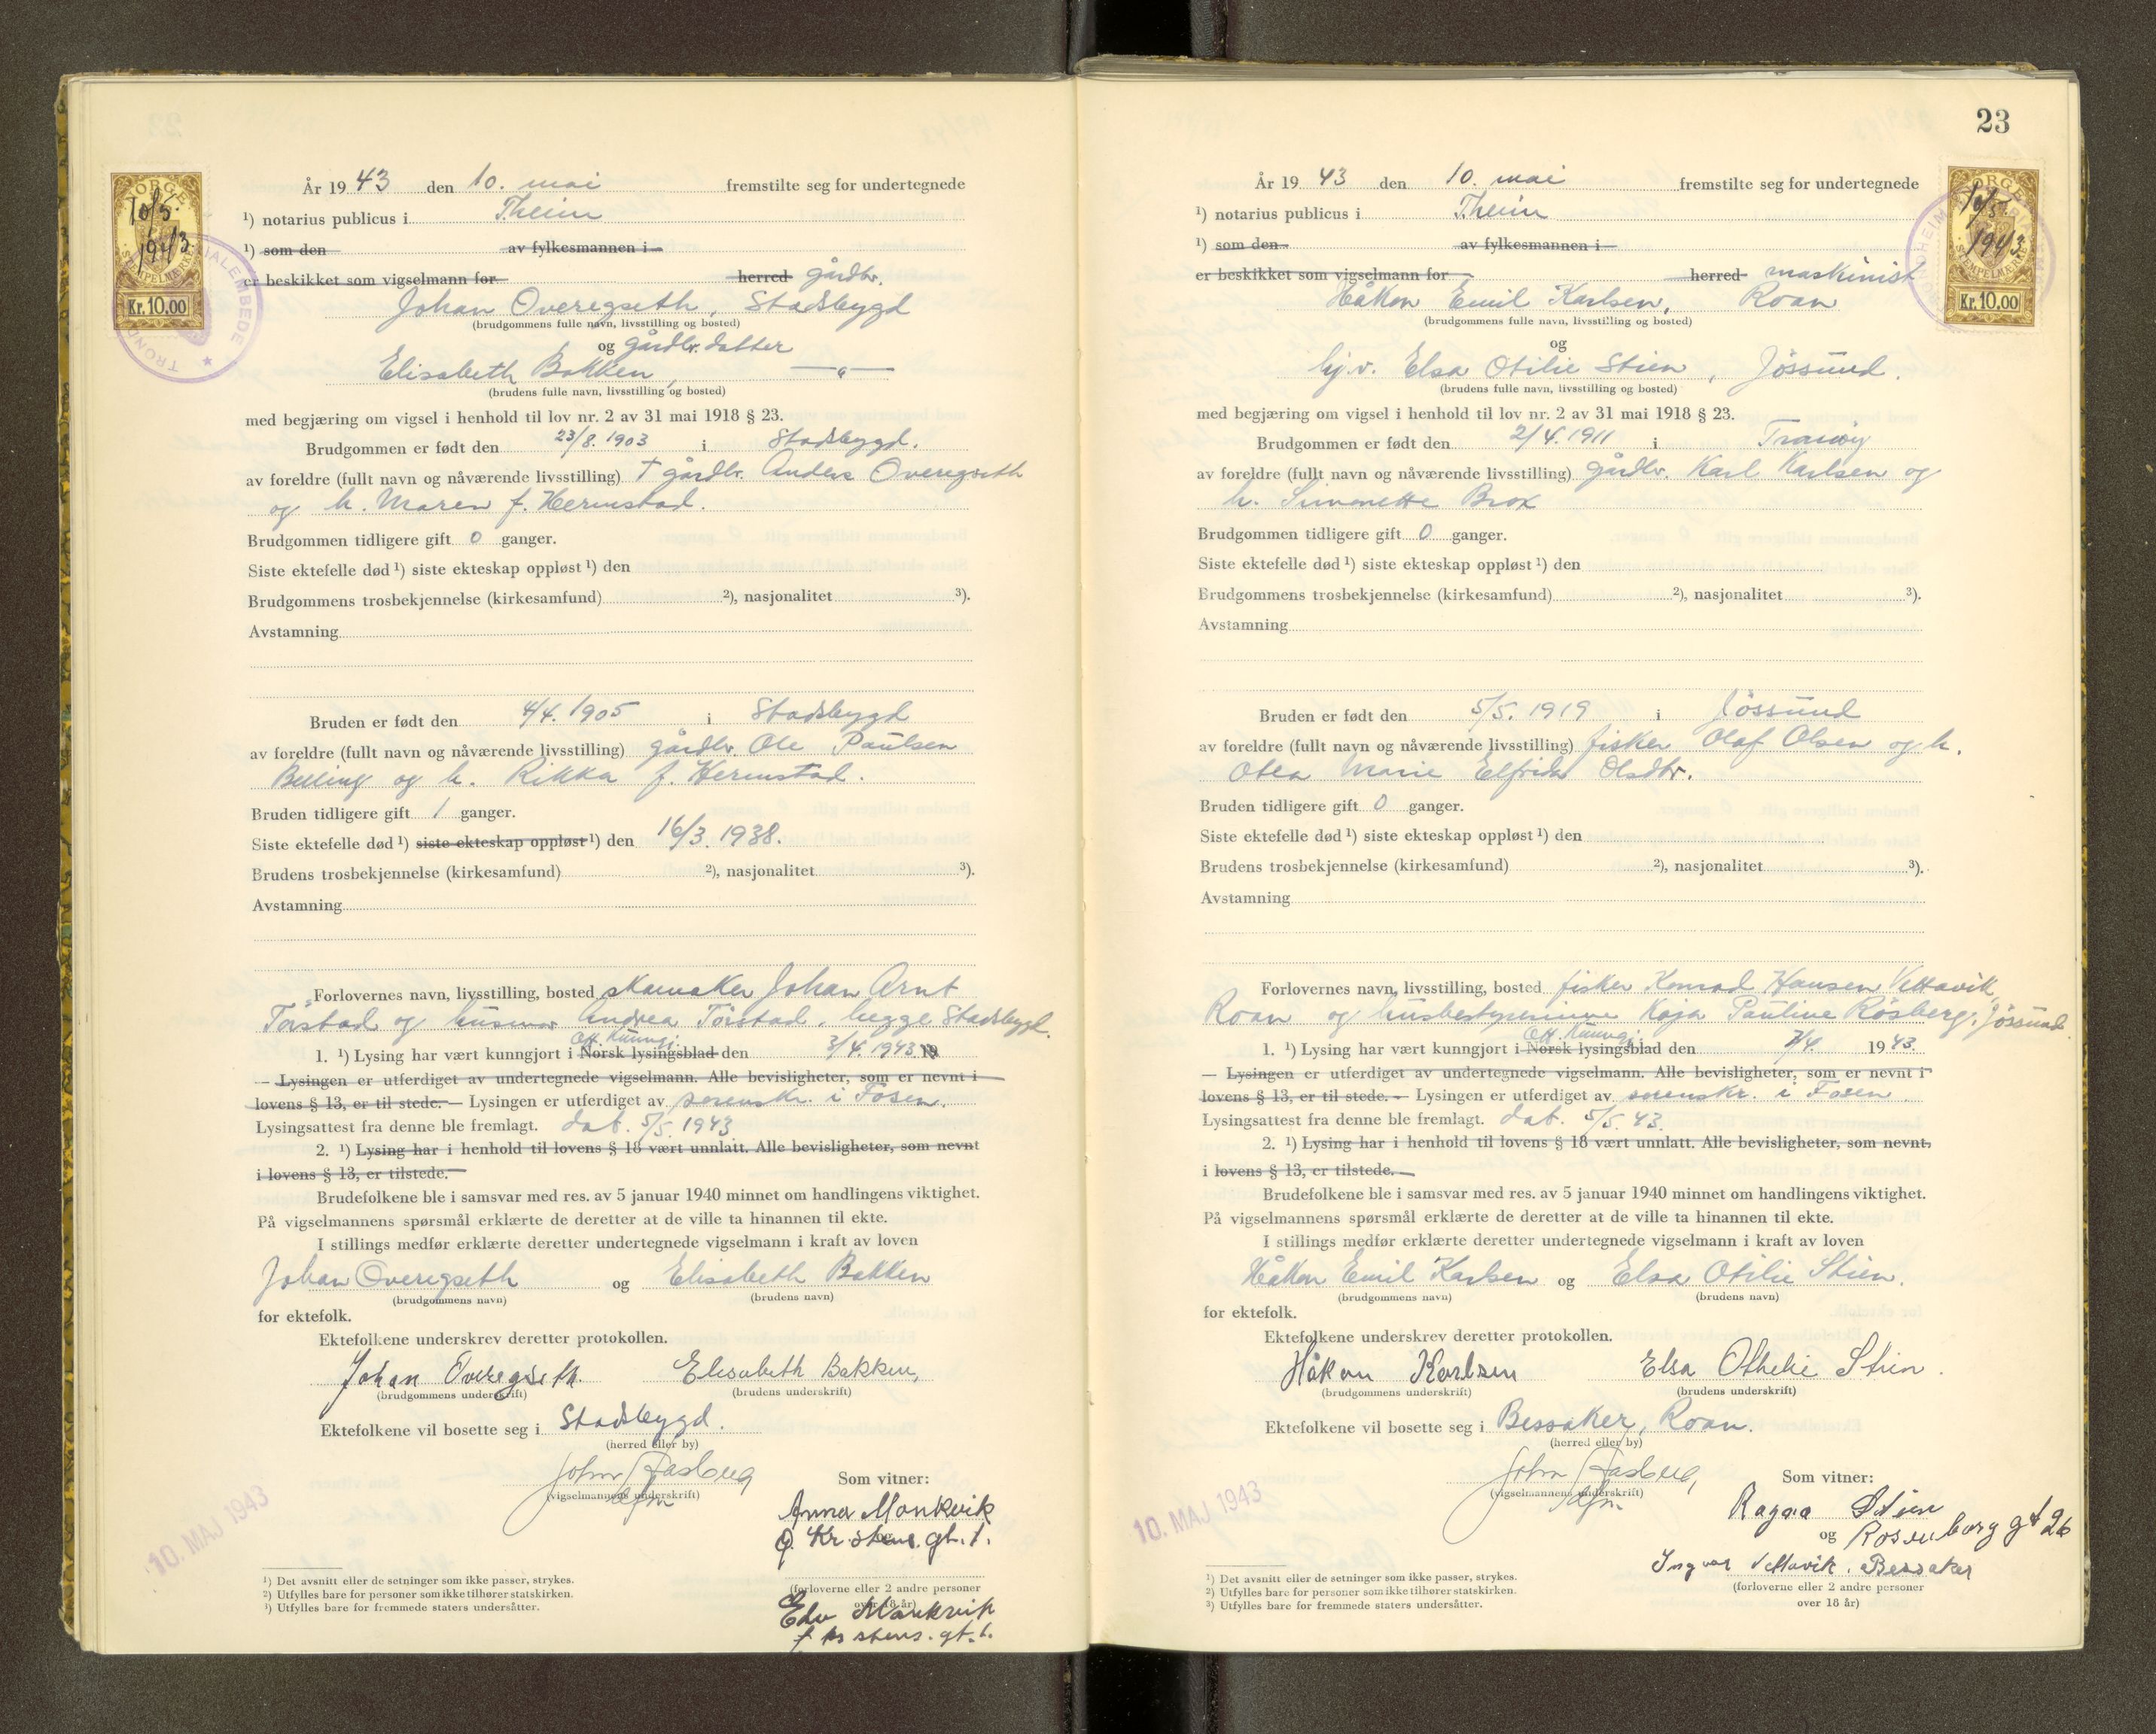 År 19 43 den 10. mai fremstilte seg for undertegnede
¹) notarius publicus i Th.eim
¹) som den av fylkesmannen i
er beskikket som vigselmann for herred gårdbr.
Johan Overegseth, Stadsbygd
(brudgommens fulle navn, livsstilling og bosted)
og gårdbr. datter
Elisabeth Bakken, —"—
(brudens fulle navn, livsstilling og bosted)
med begjæring om vigsel i henhold til lov nr. 2 av 31 mai 1918 § 23.
Brudgommen er født den 23/8. 1903 i Stadsbygd.
av foreldre (fullt navn og nåværende livsstilling) † gårdbr. Anders Overegseth
og h. Maren f. Hermstad.
Brudgommen tidligere gift 0 ganger.
Siste ektefelle død ¹) siste ekteskap oppløst ¹) den
Brudgommens trosbekjennelse (kirkesamfund) ²), nasjonalitet ³).
Avstamning
Bruden er født den 4/4. 1905 i Stadsbygd
av foreldre (fullt navn og nåværende livsstilling) gårdbr. Ole Paulsen
og h. Rikka f. Hermstad.
Bruden tidligere gift 1 ganger.
Siste ektefelle død ¹) siste ekteskap oppløst ¹) den 16/3. 1938.
Brudens trosbekjennelse (kirkesamfund) ²), nasjonalitet ³).
Avstamning
Forlovernes navn, livsstilling, bosted skomaker Johan Arnt
Tørstad og husmor Andrea Tørstad, begge Stadsbygd.
Off. Kunngj.
1. ¹) Lysing har vært kunngjort i Norsk lysingsblad den 3/4. 1943. 19
— Lysingen er utferdiget av undertegnede vigselmann. Alle bevisligheter, som er nevnt i
lovens § 13, er til stede. — Lysingen er utferdiget av sorenskr. i Fosen.
Lysingsattest fra denne ble fremlagt. dat. 5/5. 1943
2. ¹) Lysing har i henhold til lovens § 18 vært unnlatt. Alle bevisligheter, som nevnt
i lovens § 13, er tilstede.
Brudefolkene ble i samsvar med res. av 5 januar 1940 minnet om handlingens viktighet.
På vigselmannens spørsmål erklærte de deretter at de ville ta hinannen til ekte.
I stillings medfør erklærte deretter undertegnede vigselmann i kraft av loven
Johan Overegseth og Elisabeth Bakken
(brudgommens navn) (brudens navn)
for ektefolk.
Ektefolkene underskrev deretter protokollen.
Johan Overegseth. Elisabeth Bakken,
(brudgommens underskrift) (brudens underskrift)
Ektefolkene vil bosette seg i Stadsbygd.
(herred eller by)
John Aasberg
(vigselmannens underskrift)
Som vitner:
Anna Monkvik
Kr stens. gt. 1.
(forloverne eller 2 andre personer
over 18 år)
Edv Monkvik
kr stens. gt. 1.
10. MAJ 1943
¹) Det avsnitt eller de setninger som ikke passer, strykes.
²) Utfylles bare for personer som ikke tilhører statskirken.
³) Utfylles bare for fremmede staters undersåtter.
NORGE
10/5.
1943.
STEMPELMERKE
Kr. 10,00
23
År 19 43 den 10. mai fremstilte seg for undertegnede
¹) notarius publicus i Th.eim
¹) som den av fylkesmannen i
er beskikket som vigselmann for herred maskinist
Håkon Emil Karlsen, Roan
(brudgommens fulle navn, livsstilling og bosted)
og
hj.v. Elsa Otilie Stien, Jössund.
(brudens fulle navn, livsstilling og bosted)
med begjæring om vigsel i henhold til lov nr. 2 av 31 mai 1918 § 23.
Brudgommen er født den 2/4. 1911 i Tranöy
av foreldre (fullt navn og nåværende livsstilling) gårdbr. Karl Karlsen og
h. Simonette Brox
Brudgommen tidligere gift 0 ganger.
Siste ektefelle død ¹) siste ekteskap oppløst ¹) den
Brudgommens trosbekjennelse (kirkesamfund) ²), nasjonalitet ³).
Avstamning
Bruden er født den 5/5. 1919 i Jössund
av foreldre (fullt navn og nåværende livsstilling) fisker Olaf Olsen og h.
Otea Marie Elfrida Olsdtr.
Bruden tidligere gift 0 ganger.
Siste ektefelle død ¹) siste ekteskap oppløst ¹) den
Brudens trosbekjennelse (kirkesamfund) ²), nasjonalitet ³).
Avstamning
Forlovernes navn, livsstilling, bosted fisker Konrad Hansen Vettavik,
Roan og husbestyrerinne Kaja Pauline Rösberg, Jössund
Off. Kunngj.
1. ¹) Lysing har vært kunngjort i Norsk lysingsblad den 7/4. 19 43.
— Lysingen er utferdiget av undertegnede vigselmann. Alle bevisligheter, som er nevnt i
lovens § 13, er til stede. — Lysingen er utferdiget av sorenskr. i Fosen.
Lysingsattest fra denne ble fremlagt. dat. 5/5. 43.
2. ¹) Lysing har i henhold til lovens § 18 vært unnlatt. Alle bevisligheter, som nevnt.
i lovens § 13, er tilstede.
Brudefolkene ble i samsvar med res. av 5 januar 1940 minnet om handlingens viktighet.
På vigselmannens spørsmål erklærte de deretter at de ville ta hinannen til ekte.
I stillings medfør erklærte deretter undertegnede vigselmann i kraft av loven
Håkon Emil Karlsen og Elsa Otilie Stien.
(brudgommens navn) (brudens navn)
for ektefolk.
Ektefolkene underskrev deretter protokollen.
Håkon Karlsen Elsa Othelie Stien.
(brudgommens underskrift) (brudens underskrift)
Ektefolkene vil bosette seg i Bessaker, Roan.
(herred eller by)
John Aasberg,
(vigselmannens underskrift)
Som vitner:
Ragna Stien
og Rosenborg gt 26
Ingvar Vettavik. Bessaker
(forloverne eller 2 andre personer
over 18 år)
10. MAJ 1943
¹) Det avsnitt eller de setninger som ikke passer, strykes.
²) Utfylles bare for personer som ikke tilhører statskirken.
³) Utfylles bare for fremmede staters undersåtter.
NORGE
10/5.
1943.
STEMPELMERKE
Kr. 10,00